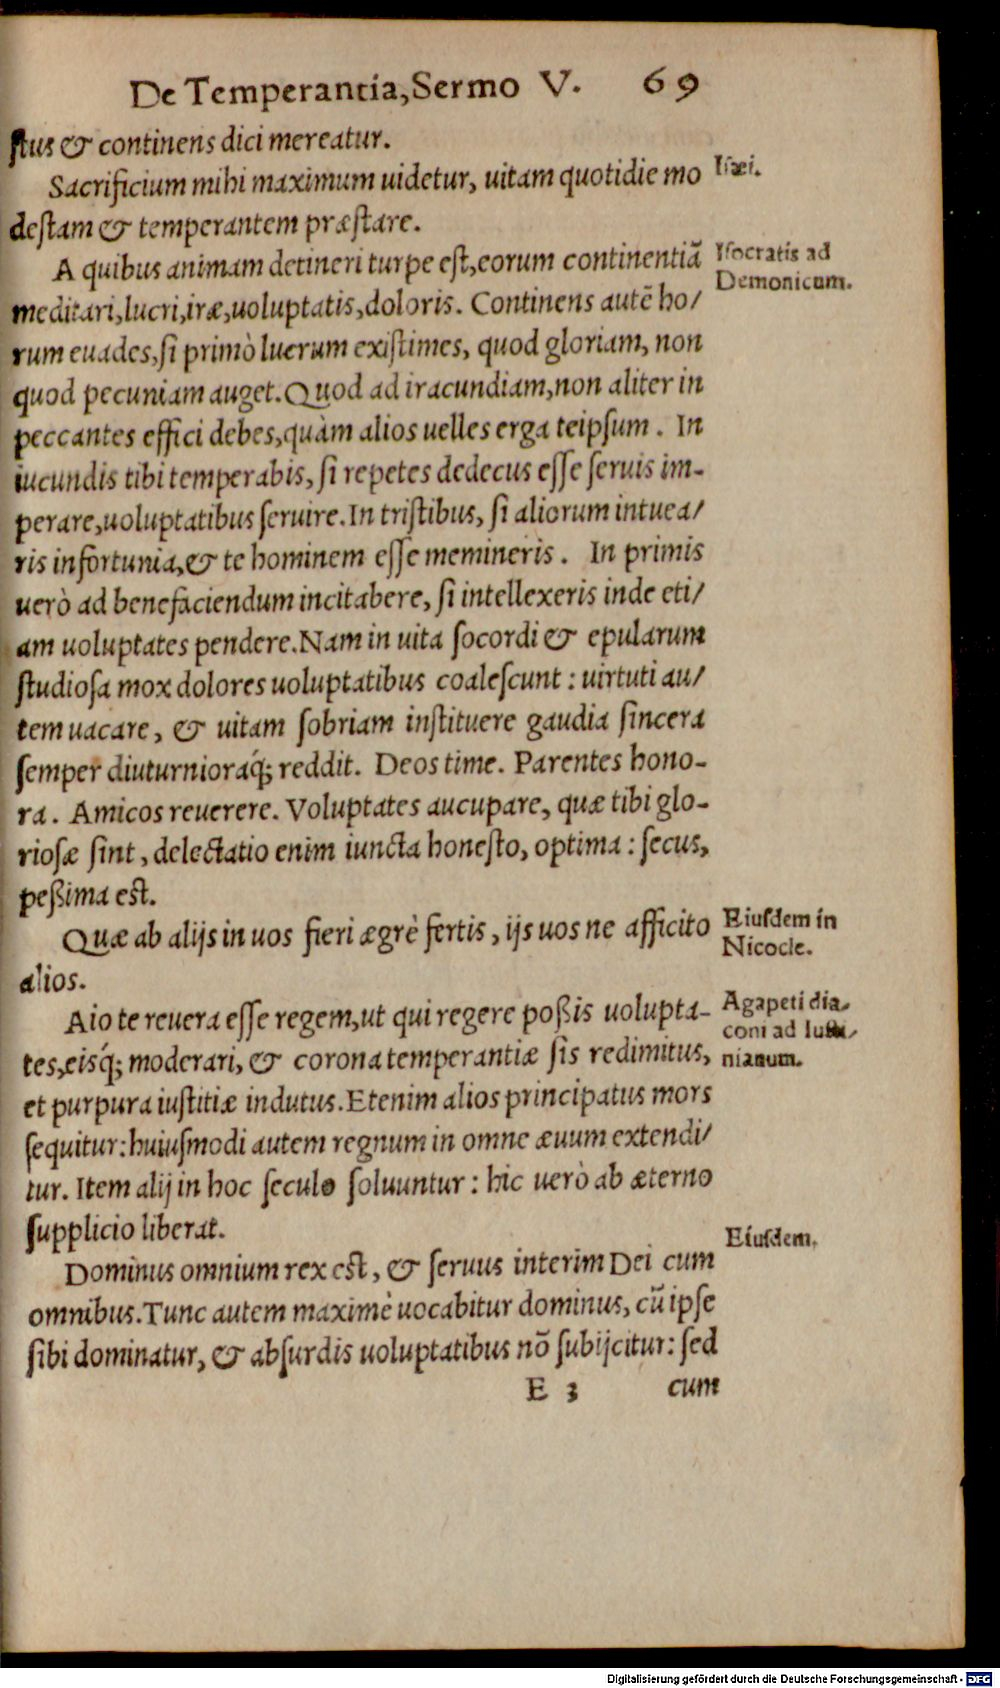 De Temperantia, Sermo V. 69
stus & continens dici mereatur.
Sacrificium mihi maximum uidetur, uitam quotidie mo
Isæi.
destam & temperantem præstare.
A quibus animam detineri turpe est, eorum continentiā
Isocratis ad
Demonicum.
meditari, lucri, iræ, uoluptatis, doloris. Continens autē ho/
rum euades, si primò lucrum existimes, quod gloriam, non
quod pecuniam auget. Quod ad iracundiam, non aliter in
peccantes effici debes, quàm alios uelles erga teipsum. In
iucundis tibi temperabis, si repetes dedecus esse seruis im-
perare, uoluptatibus seruire. In tristibus, si aliorum intuea/
ris infortunia, & te hominem esse memineris. In primis
uerò ad benefaciendum incitabere, si intellexeris inde eti/
am uoluptates pendere. Nam in uita socordi & epularum
studiosa mox dolores uoluptatibus coalescunt: uirtuti au/
tem uacare, & uitam sobriam instituere gaudia sincera
semper diuturnioraq́; reddit. Deos time. Parentes hono-
ra. Amicos reuerere. Voluptates aucupare, quæ tibi glo-
riosæ sint, delectatio enim iuncta honesto, optima: secus,
peßima est.
Quæ ab alijs in uos fieri ægrè fertis, ijs uos ne afficito
Eiusdem in
Nicocle.
alios.
Aio te reuera esse regem, ut qui regere poßis uolupta-
Agapeti dia-
coni ad Iusti/
nianum.
tes, eisq́; moderari, & corona temperantiæ sis redimitus,
et purpura iustitiæ indutus. Etenim alios principatus mors
sequitur: huiusmodi autem regnum in omne æuum extendi/
tur. Item alij in hoc seculo soluuntur: hic uerò ab æterno
supplicio liberat.
Eiusdem.
Dominus omnium rex est, & seruus interim Dei cum
omnibus. Tunc autem maximè uocabitur dominus, cū ipse
sibi dominatur, & absurdis uoluptatibus nō subijcitur: sed
E 3 cum
Digitalisierung gefördert durch die Deutsche Forschungsgemeinschaft - DFG